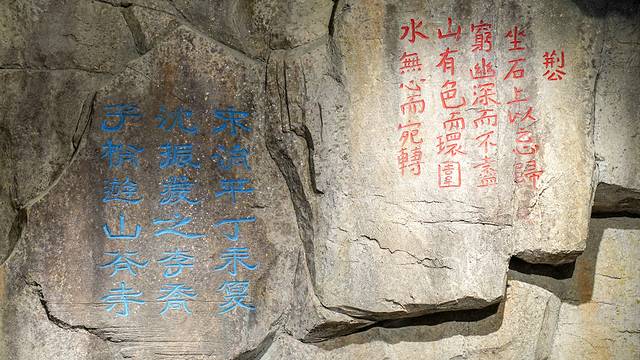 水無心而宛轉
山有色而環圍
窮幽深而不盡
坐石上以忘歸
荆公
宋治平丁未夏
沈振之李
子遊山谷寺